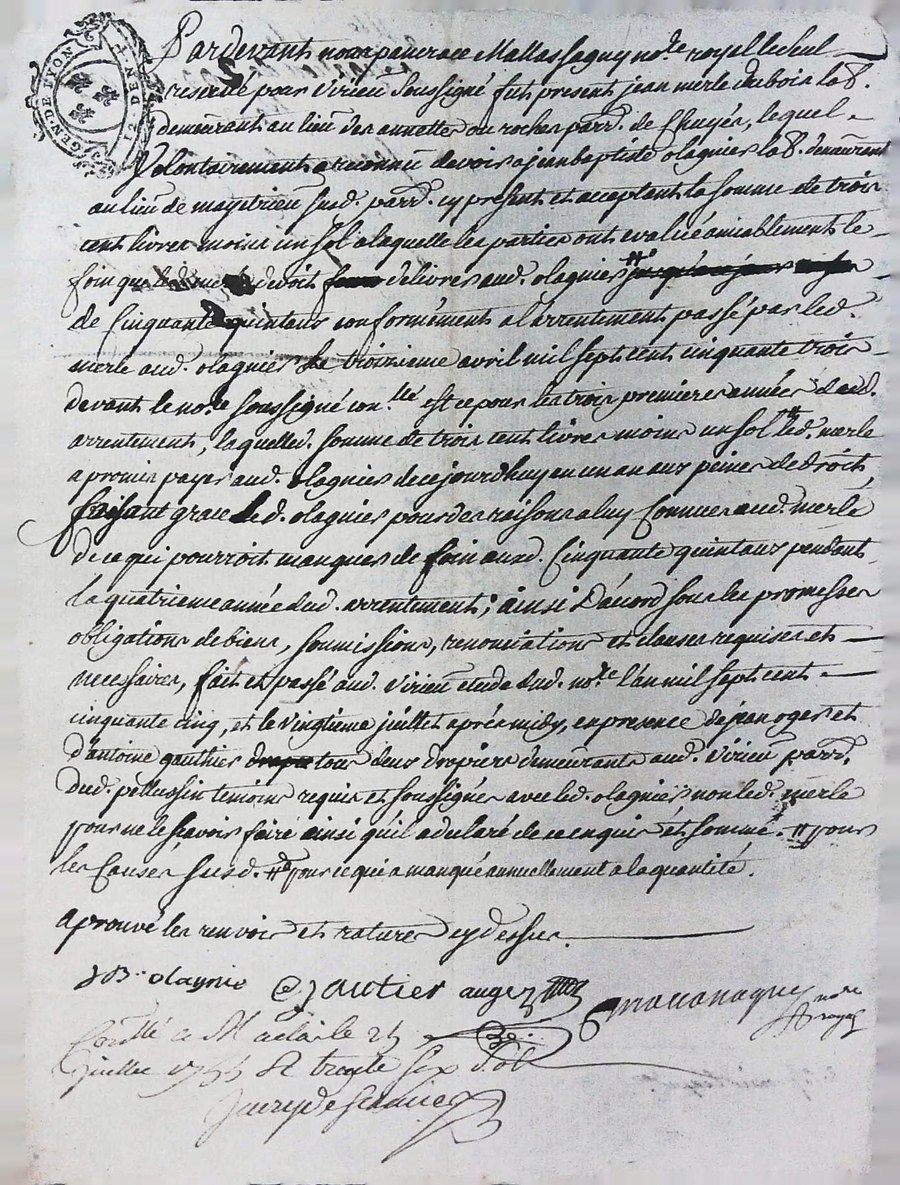 GEN. DE LYON
DEN. T
Pardevant nous pancrace Mallassagny no.re royal
reservé pour virieu soussigné fut present jean merle dubois lab.
demeurant au lieu des annettes ou roches parr. de Chuyés, lequel
Volontairement a reconnu devoir a jean baptiste olagnier lab. demeurant
au lieu de susd. parr. cy present et acceptant la somme de trois
cent livres moins un sol a laquelle les parties ont evalué amiablement le
foin que led. devoit delivrer aud. olagnier
de Cinquante quintaux conformement a l'arrentement passé par led.
merle aud. olagnier le troizieme avril mil sept cent cinquante trois
devant le no.re soussigné con.llé est ce pour les trois premieres années dud.
arrentement, laquelle d. somme de trois cent livres moins un sol led. merle
a promis payer aud. olagnier de ce jourdhuy en un an aux peines de droit
faisant grace led. olagnier pour des raisons a luy Connues aud. merle
de ce qui pourroit manquer de foin ausd. Cinquante quintaux pendant
la quatrieme année dud. arrentement; ainsi D'acord sous les promesses
obligations de biens, soumissions, renonciations et clauses requises et
necessaires, fait et passé aud. virieu etude dud. no.re l'an mil sept cent
cinquante cinq, et le vingtieme juillet apres midy, en presence de jean oger et
d'antoine gauthier tous deux drapiers demeurants aud. virieu parr.
dud. pellussin temoins requis et soussignes avec led. olagnier non led. merle
pour ne le sçavoir faire ainsi qu'il a declaré de ce enquis et sommé. # pour
les Causes susd. # pour ce qui a manqué annuellement a la quantité.
aprouvé les renvois et ratures cy dessus.
JB. olagnié gautier auge
no.re royal
Con.llé a Maclas le 25
juillet 1755 R treyze six sols